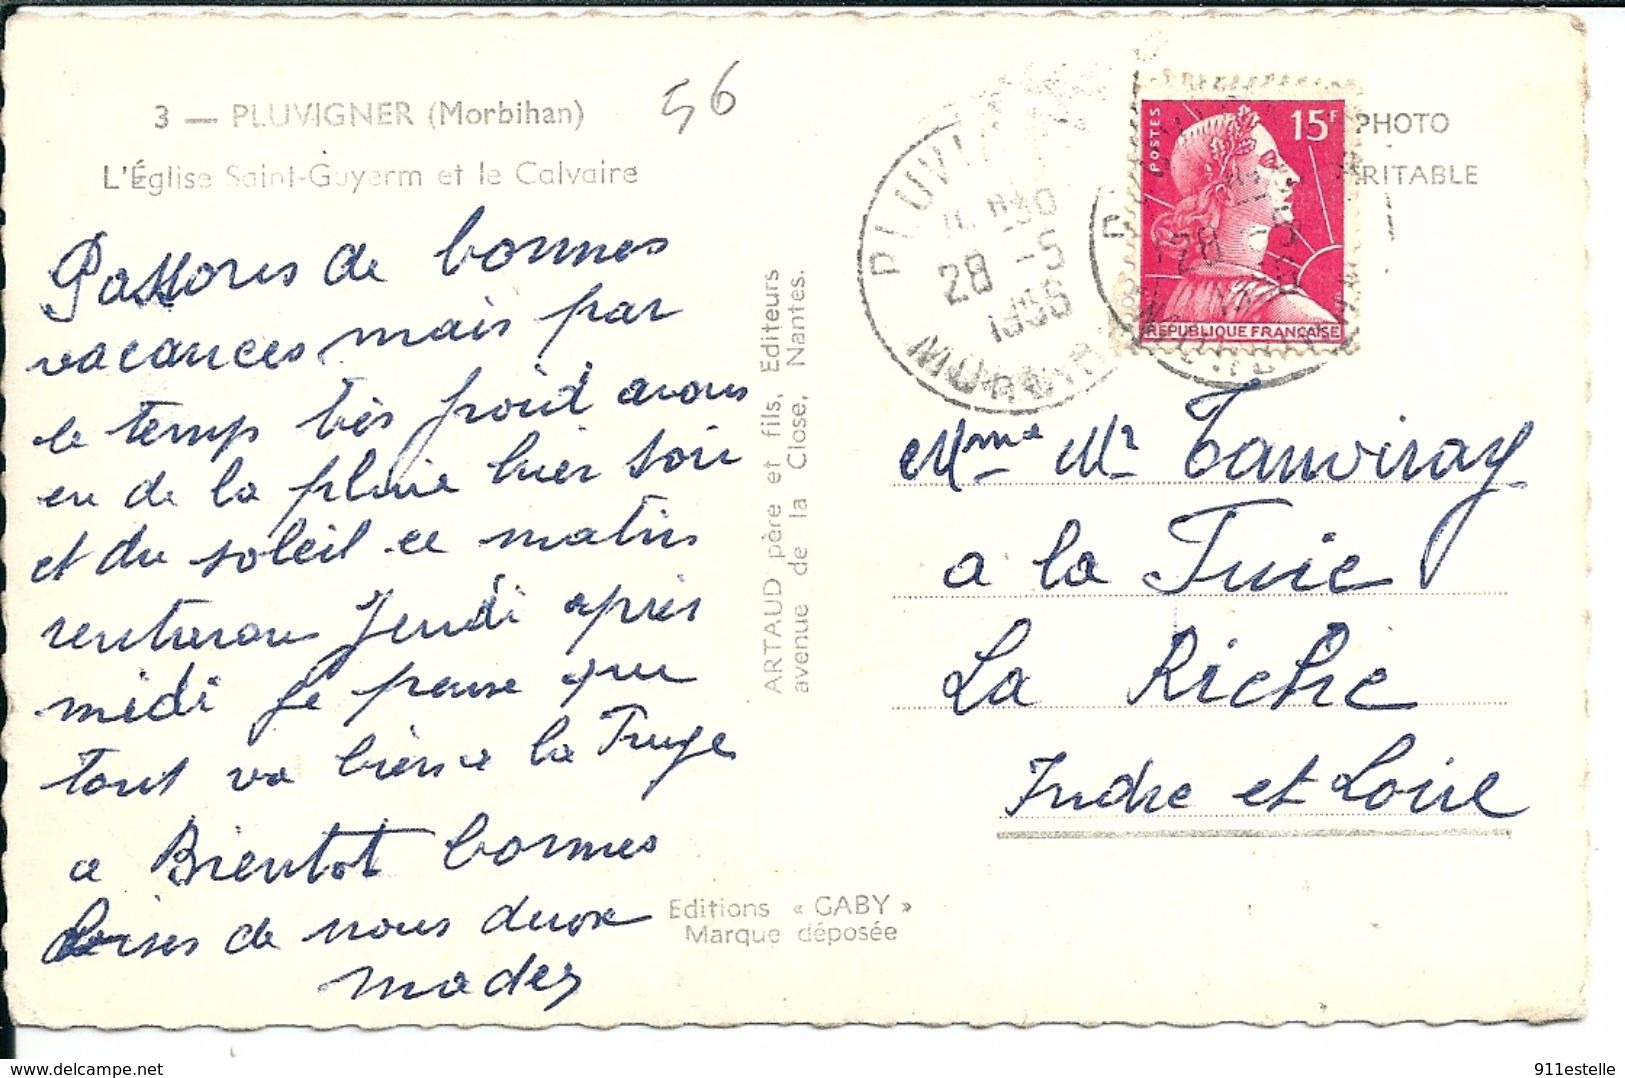 3 — PLUVIGNER (Morbihan)
L'Église Saint-Guyerm et le Calvaire
56
Passons de bonnes
vacances mais par
le temp très froid avons
eu de la pluie hier soir
et du soleil ce matin
rentrerons Jeudi après
midi Je pense que
tout va bien a la
a Bientot bonnes
Bises de nous deux
ARTAUD père et fils, Editeurs
avenue de la Close, Nantes.
Editions « GABY »
Marque déposée
PHOTO
RITABLE
POSTES
15F
REPUBLIQUE FRANÇAISE
PLUVI
28 -5
1956
28
Mme Mr Tanviray
a la Tuie
La Riche
Indre et Loire
911estelle
www.delcampe.net